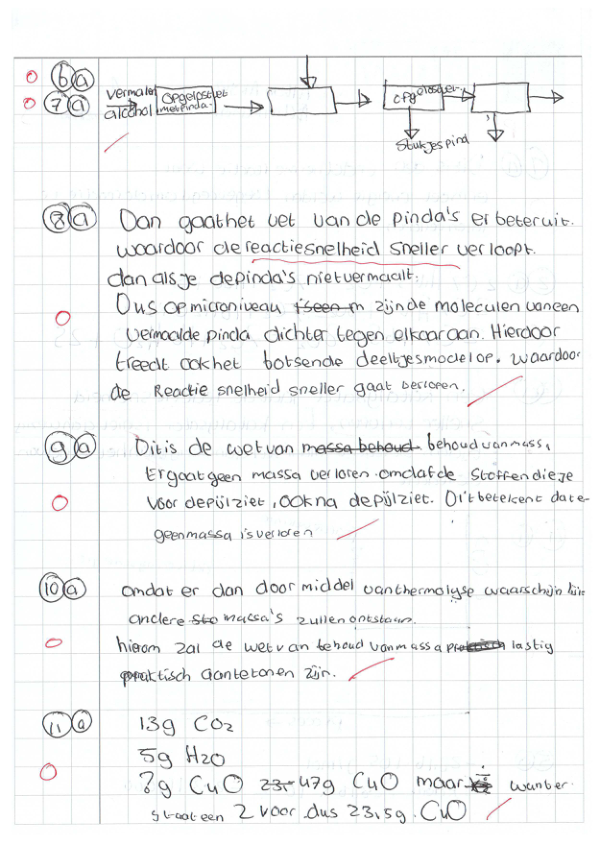 6 a
7 a
vermalen
alcohol
opgelost
met pinda.
opgelost
stukjes pind
8 a Dan gaat het vet van de pinda's er beter uit.
waardoor de reactiesnelheid sneller verloopt.
dan als je de pinda's niet vermaalt.
Dus op microniveau zijn de moleculen van een
vermaalde pinda dichter tegen elkaar aan. Hierdoor
treedt ook het botsende deeltjesmodel op. waardoor
de Reactie snelheid sneller gaat verlopen.
9 a Dit is de wet van massa behoud behoud van massa.
Er gaat geen massa verloren omdat de stoffen die je
voor de pijl ziet, ook na de pijl ziet. Dit betekent dat er
geen massa is verloren
10 a omdat er dan door middel van thermolyse waarschijnlijk
andere sto massa's zullen ontstaan.
hierom zal de wet van behoud van massa lastig
praktisch aantetonen zijn.
11 a 13g CO2
5g H2O
?g CuO 23,- 47g CuO maar want er
staat een 2 voor dus 23,5g CuO